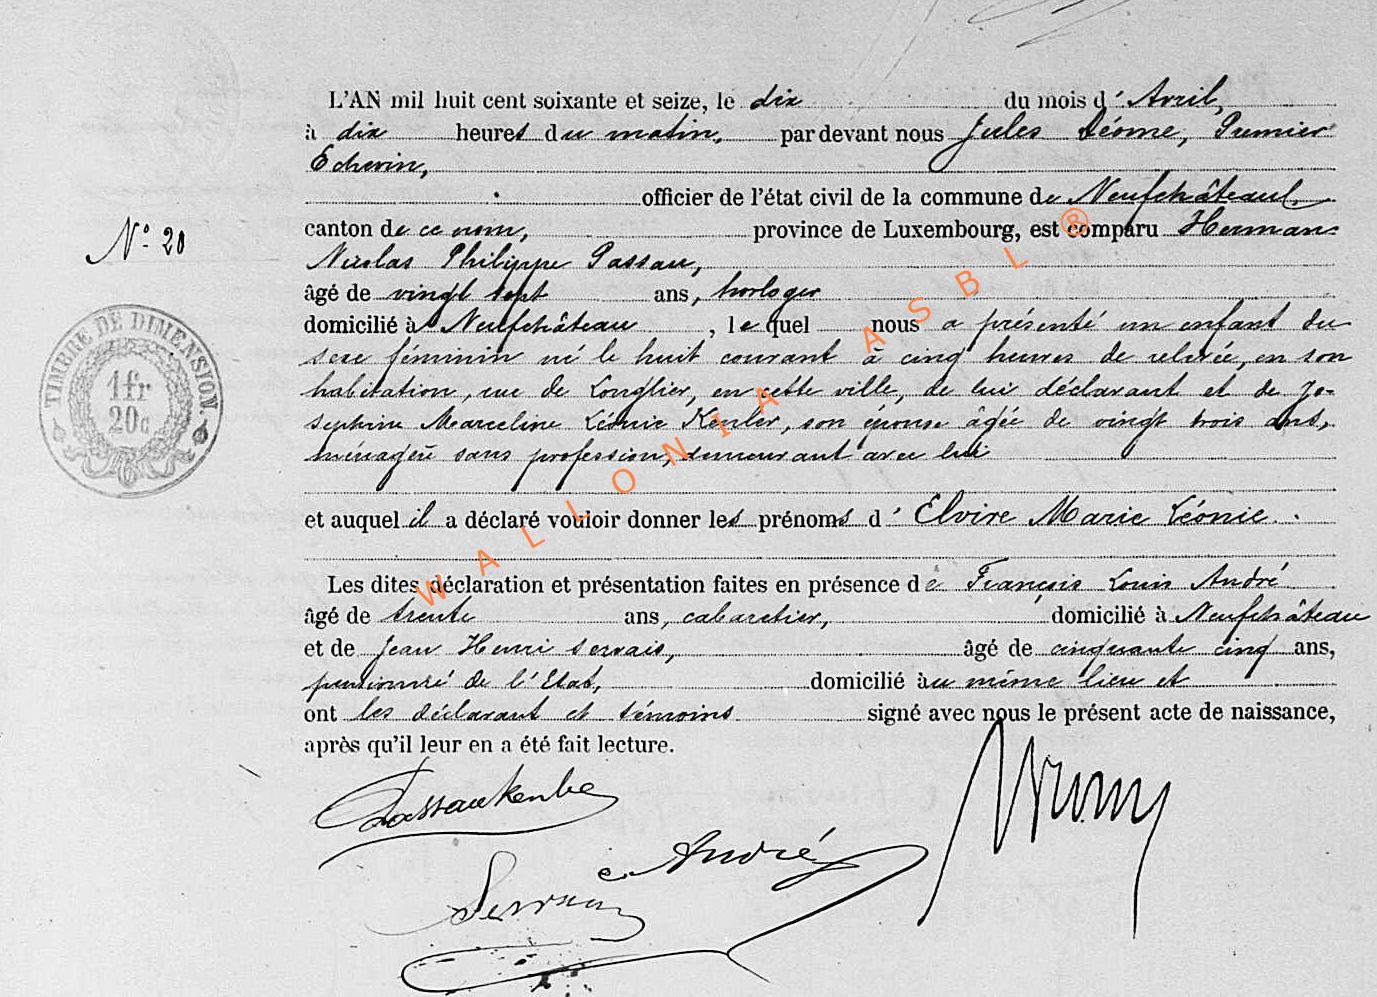 L'AN mil huit cent soixante et seize, le dix du mois d' Avril,
à dix heures du matin, par devant nous Jules Déome, Premier
Echevin,
officier de l'état civil de la commune de Neufchâteau,
N° 20
canton de ce nom, province de Luxembourg, est comparu Herman-
Nicolas Philippe Passau,
âgé de vingt sept ans, horloger
domicilié à Neufchâteau, lequel nous a présenté un enfant du
sexe féminin né le huit courant à cinq heures de relevée, en son
habitation, rue de Longlier, en cette ville, de lui déclarant et de Jo-
séphine Marceline Léonie Kenler, son épouse âgée de vingt trois ans,
ménagère sans profession, demeurant avec lui
et auquel il a déclaré vouloir donner les prénoms d' Elvire Marie Léonie.
Les dites déclaration et présentation faites en présence de François Louis André
âgé de trente ans, cabaretier, domicilié à Neufchâteau
et de Jean Henri Servais, âgé de cinquante cinq ans,
pensionné de l'Etat, domicilié au même lieu et
ont les déclarant et témoins signé avec nous le présent acte de naissance,
après qu'il leur en a été fait lecture.
TIMBRE DE DIMENSION.
1fr
20c
André
Servais
WALLONIA ASBL ®